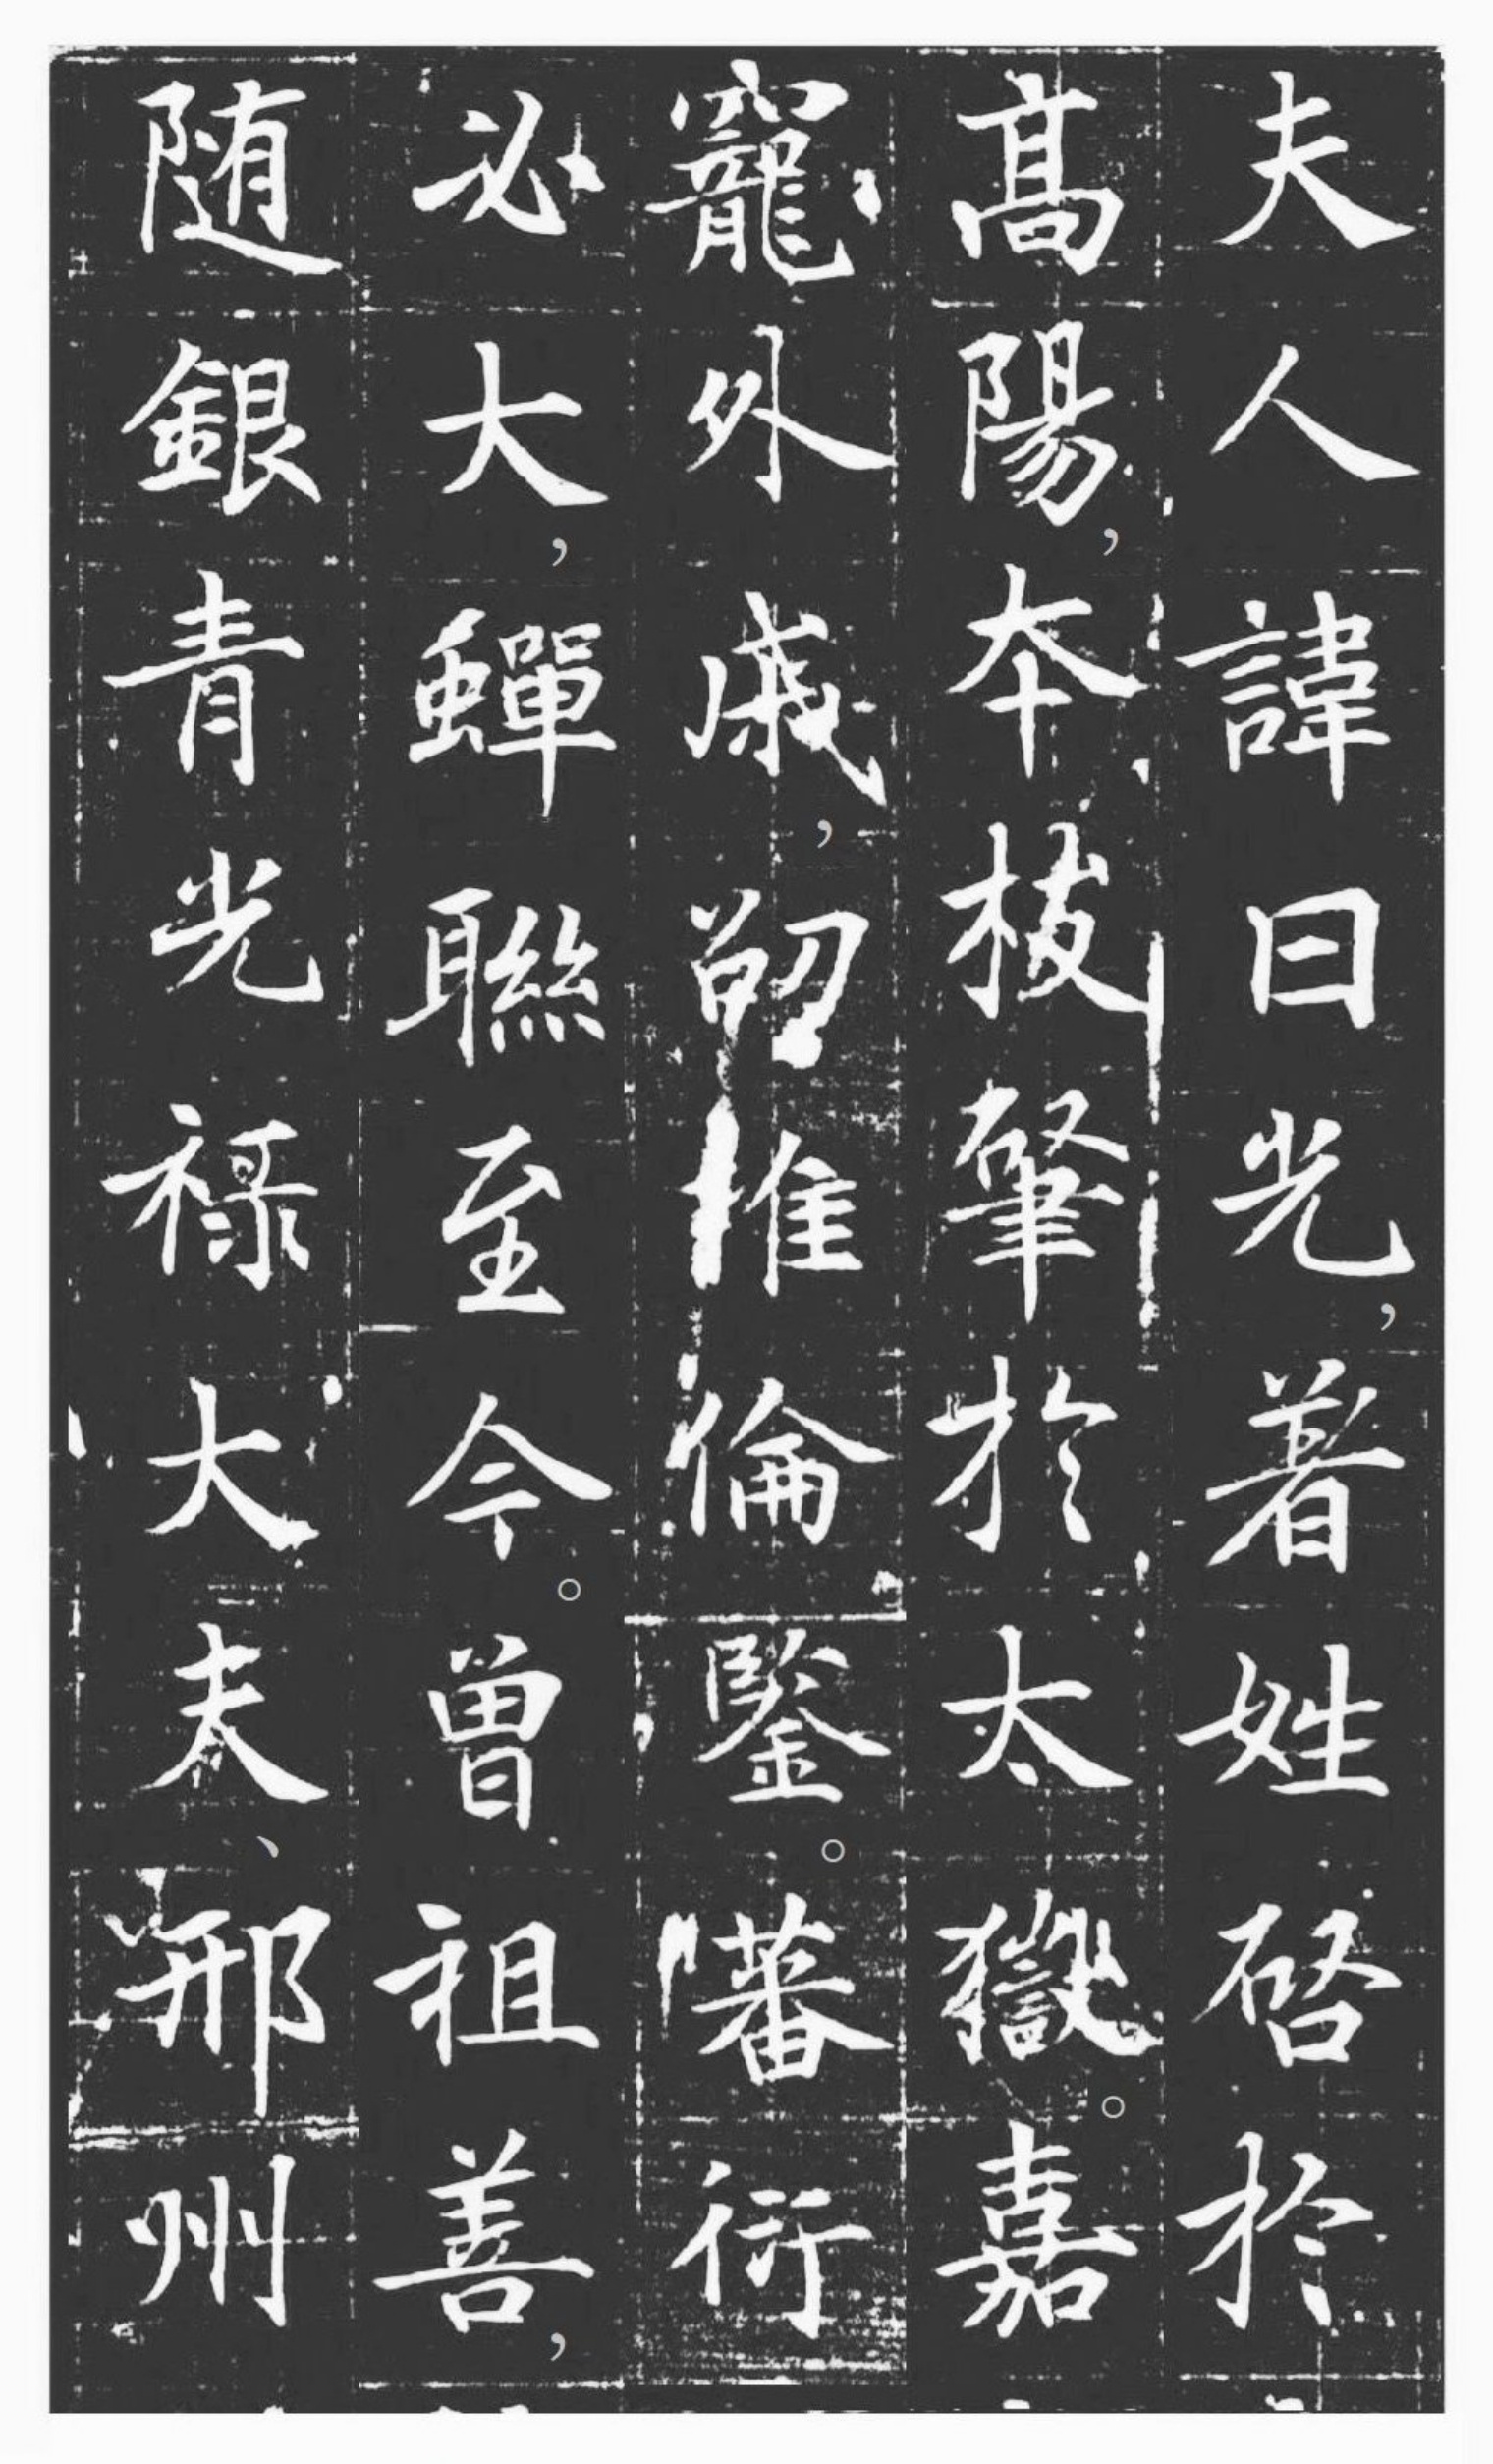 夫人諱曰光，著姓啓於
高陽，本枝肇於太嶽。嘉
寵外戚，䂮惟倫鑒。蕃衍
必大，蟬聯至今。曾祖善，
随銀青光禄大夫、邢州